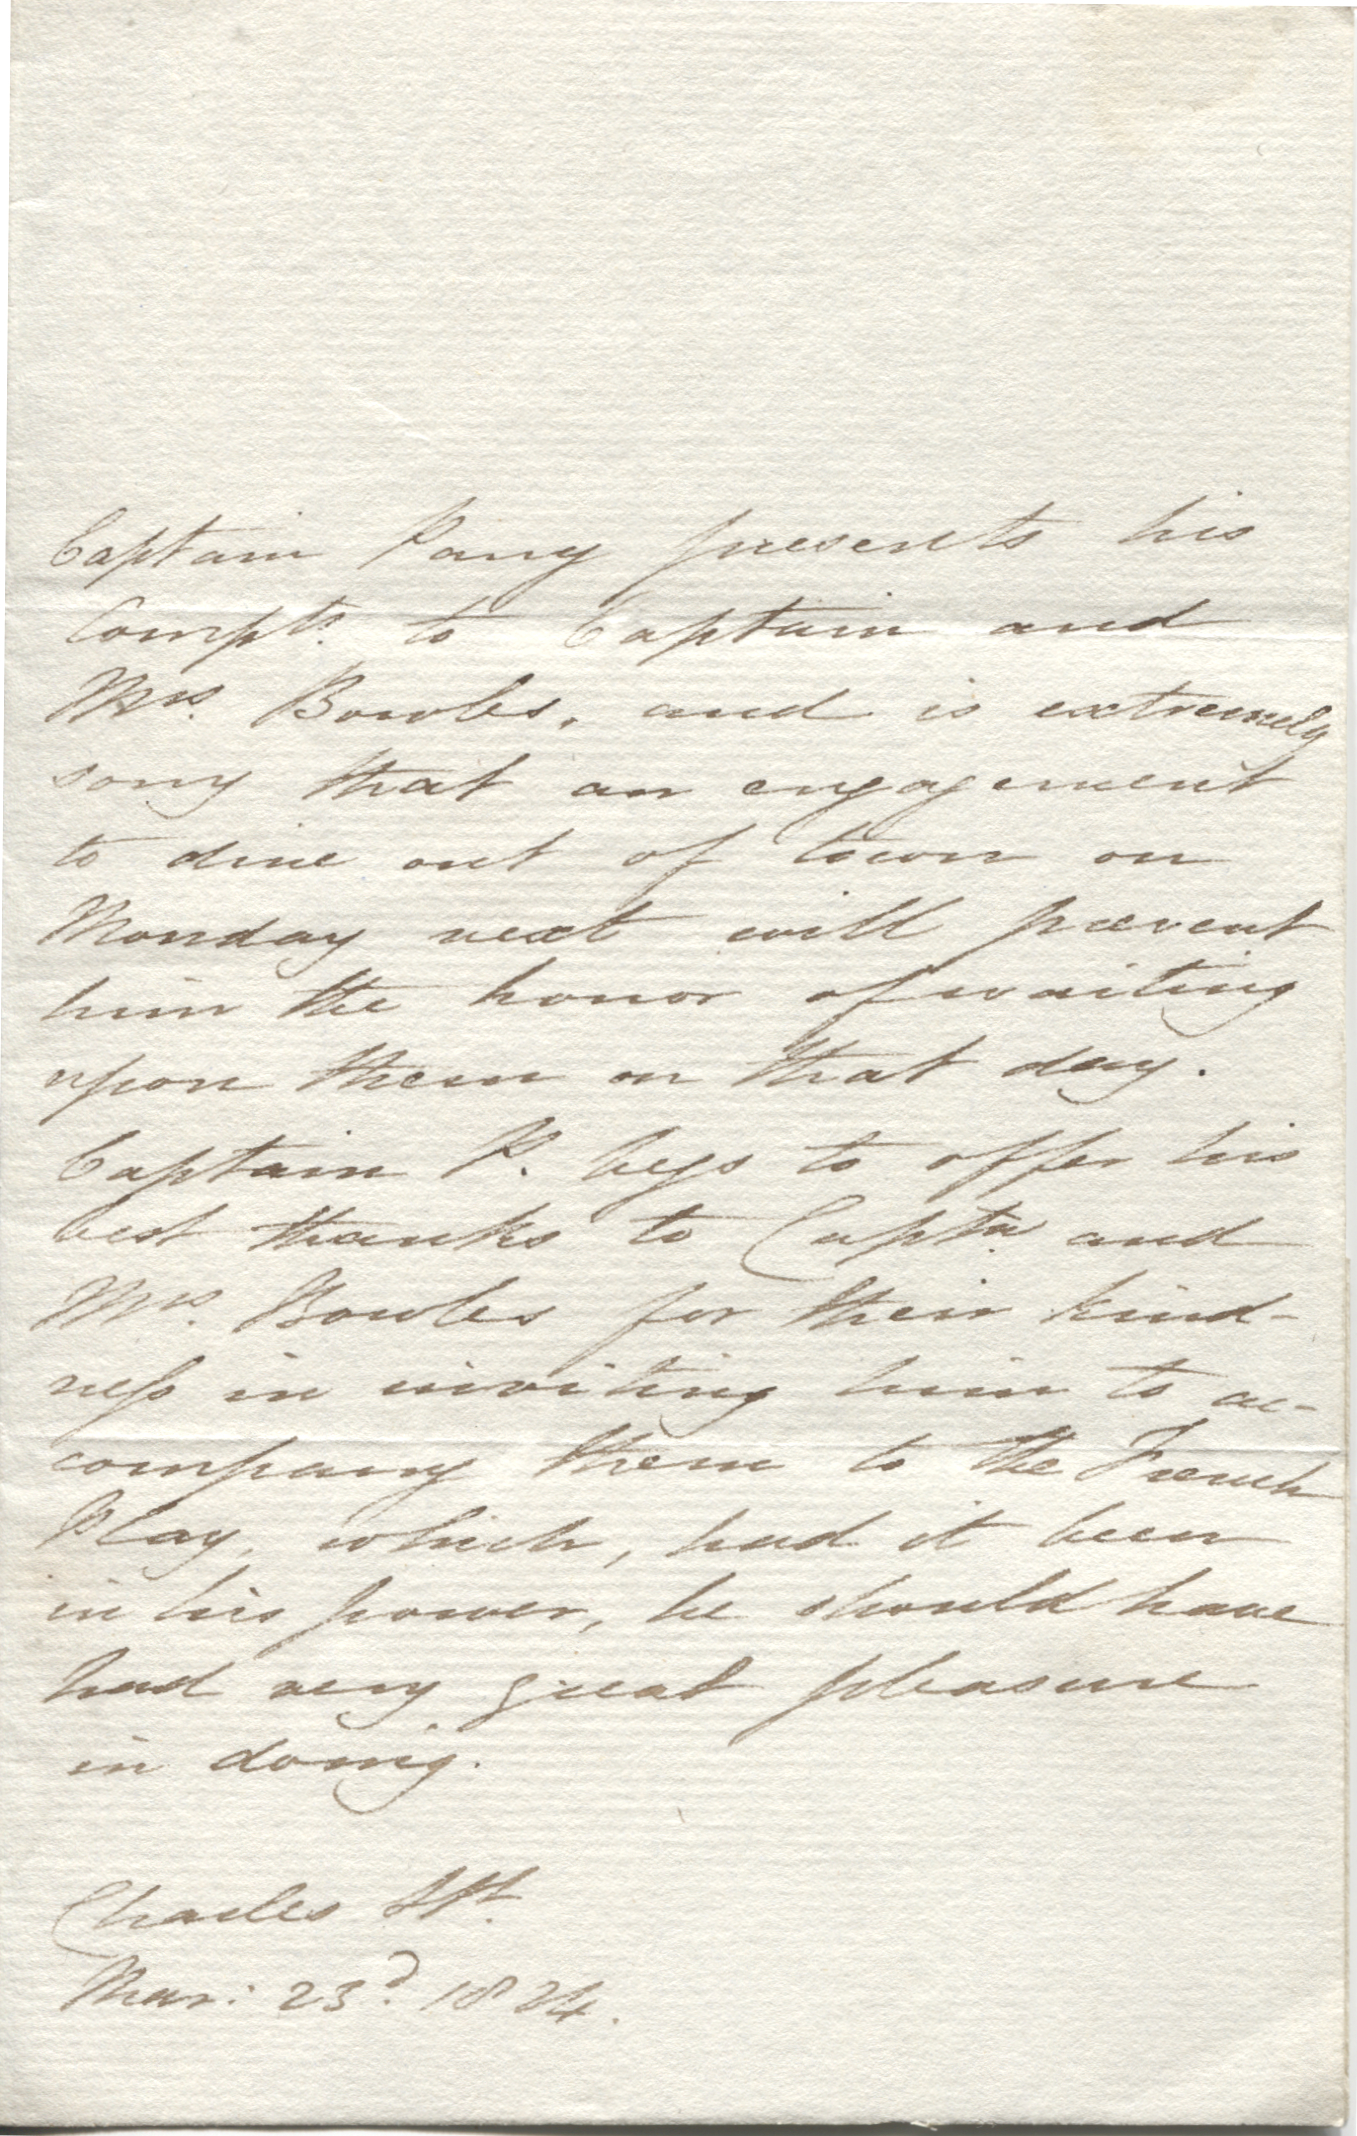 Captain Parry presents his
Compts. to Captain and
Mrs. Bowles, and is extremely
sorry that an engagement
to dine out of town on
Monday next will prevent
him the honor of waiting
upon them on that day.
Captain P. begs to offer his
best thanks to Captn. and
Mrs. Bowles for their kind-
ness in inviting him to ac-
company them to the French
Play, which, had it been
in his power, he should have
had very great pleasure
in doing.
Charles Stt.
Mar: 23d. 1824.